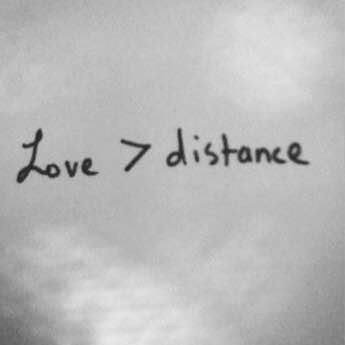 Love > distance